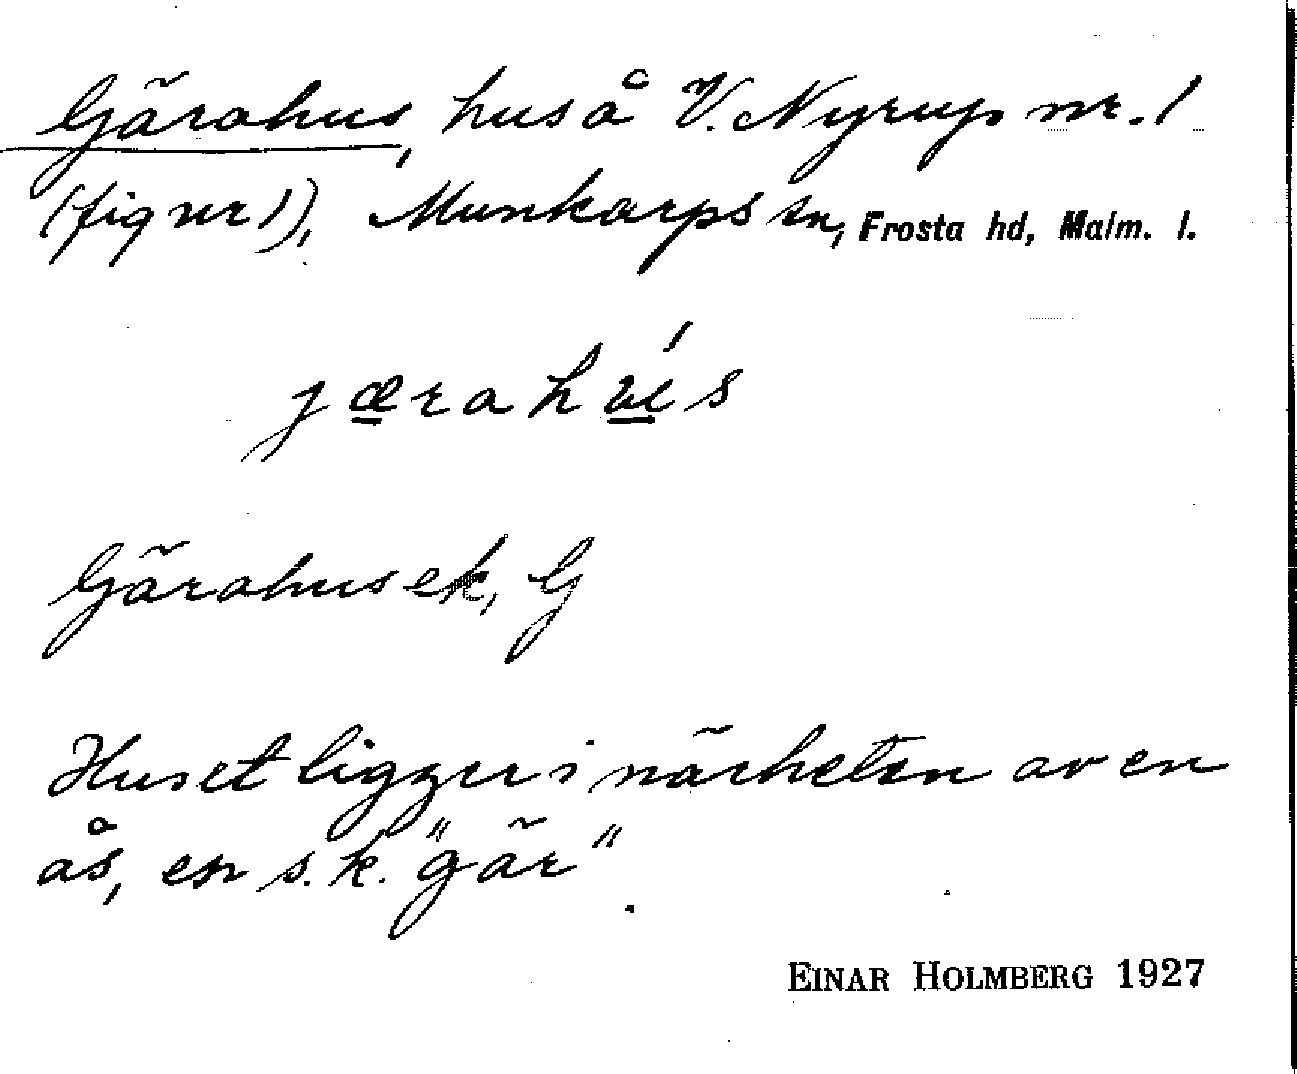 Gärahus, hus å V. Nyrup nr. 1
(fig nr 1), Munkarps sn, Frosta hd, Malm. l.
jærahúis
Gärahusek, G
Huset ligger i närheten av en
ås, en s.k. "gär".
EINAR HOLMBERG 1927